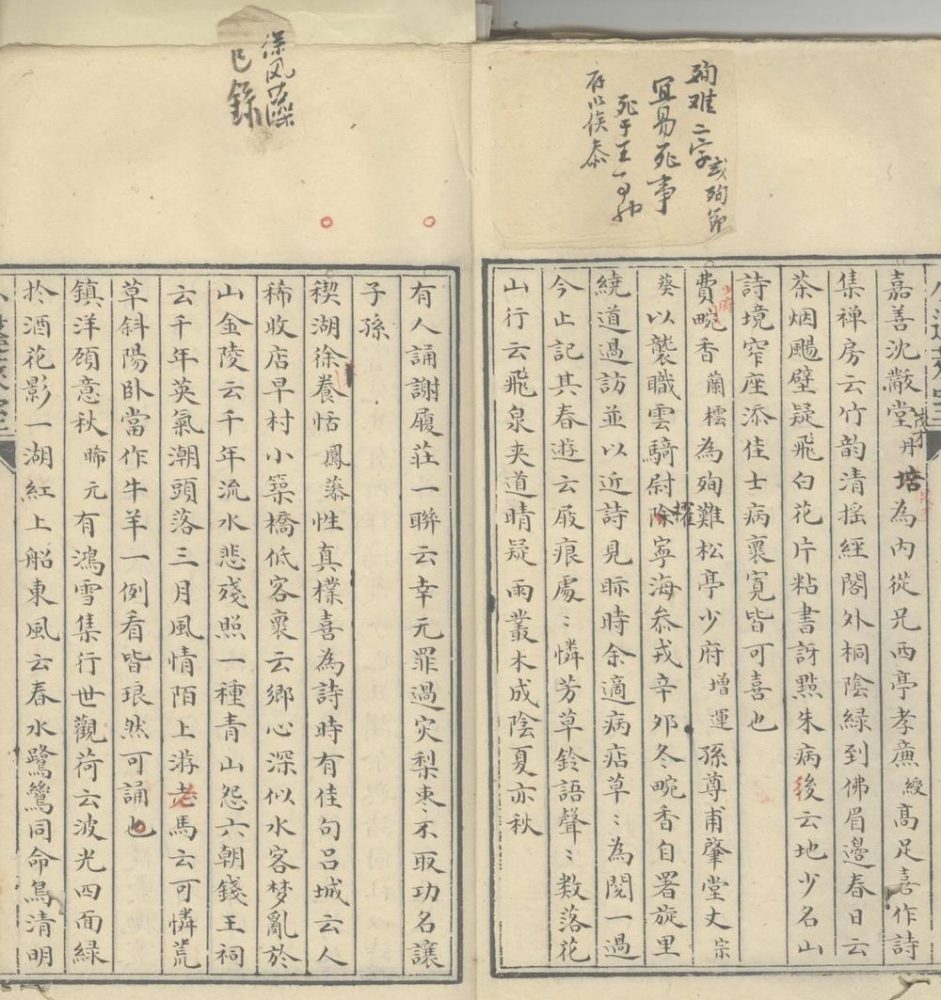 殉难二字或殉節
宜易死事
死于王事
存以俟泰
嘉善沈黻堂茂才丹培為內從兄西亭孝廉綬高足喜作詩
集禅房云竹韵清揺經閣外桐陰緑到佛眉邊春日云
茶烟颺壁疑飛白花片粘書訝㸃朱病後云地少名山
詩境窄座添佳士病裏寛皆可喜也
費畹香蘭檽為殉難松亭少府增運孫尊甫肇堂丈宗
葵以襲職雲騎尉除擢寧海叅戎辛夘冬畹香自署旋里
繞道過訪並以近詩見眎時余適病痁草〻為閲一過
今止記其春遊云屐痕處〻憐芳草鈴語聲〻數落花
山行云飛泉夾道晴疑雨叢木成陰夏亦秋
深风藻
已録
有人誦謝履莊一聯云幸元罪過灾梨枣不取功名讓
子孫
禊湖徐養恬鳳藻性真樸喜為詩時有佳句吕城云人
稀收店早村小築橋低客裏云鄉心深似水客梦亂於
山金陵云千年流水悲殘照一種青山怨六朝錢王祠
云千年英氣潮頭落三月風情陌上游老馬云可憐荒
草斜陽卧當作牛羊一例看皆琅然可誦也
鎮洋頋意秋晞元有鴻雪集行世觀荷云波光四面緑
於酒花影一湖紅上船東風云春水鷺鷥同命鳥清明